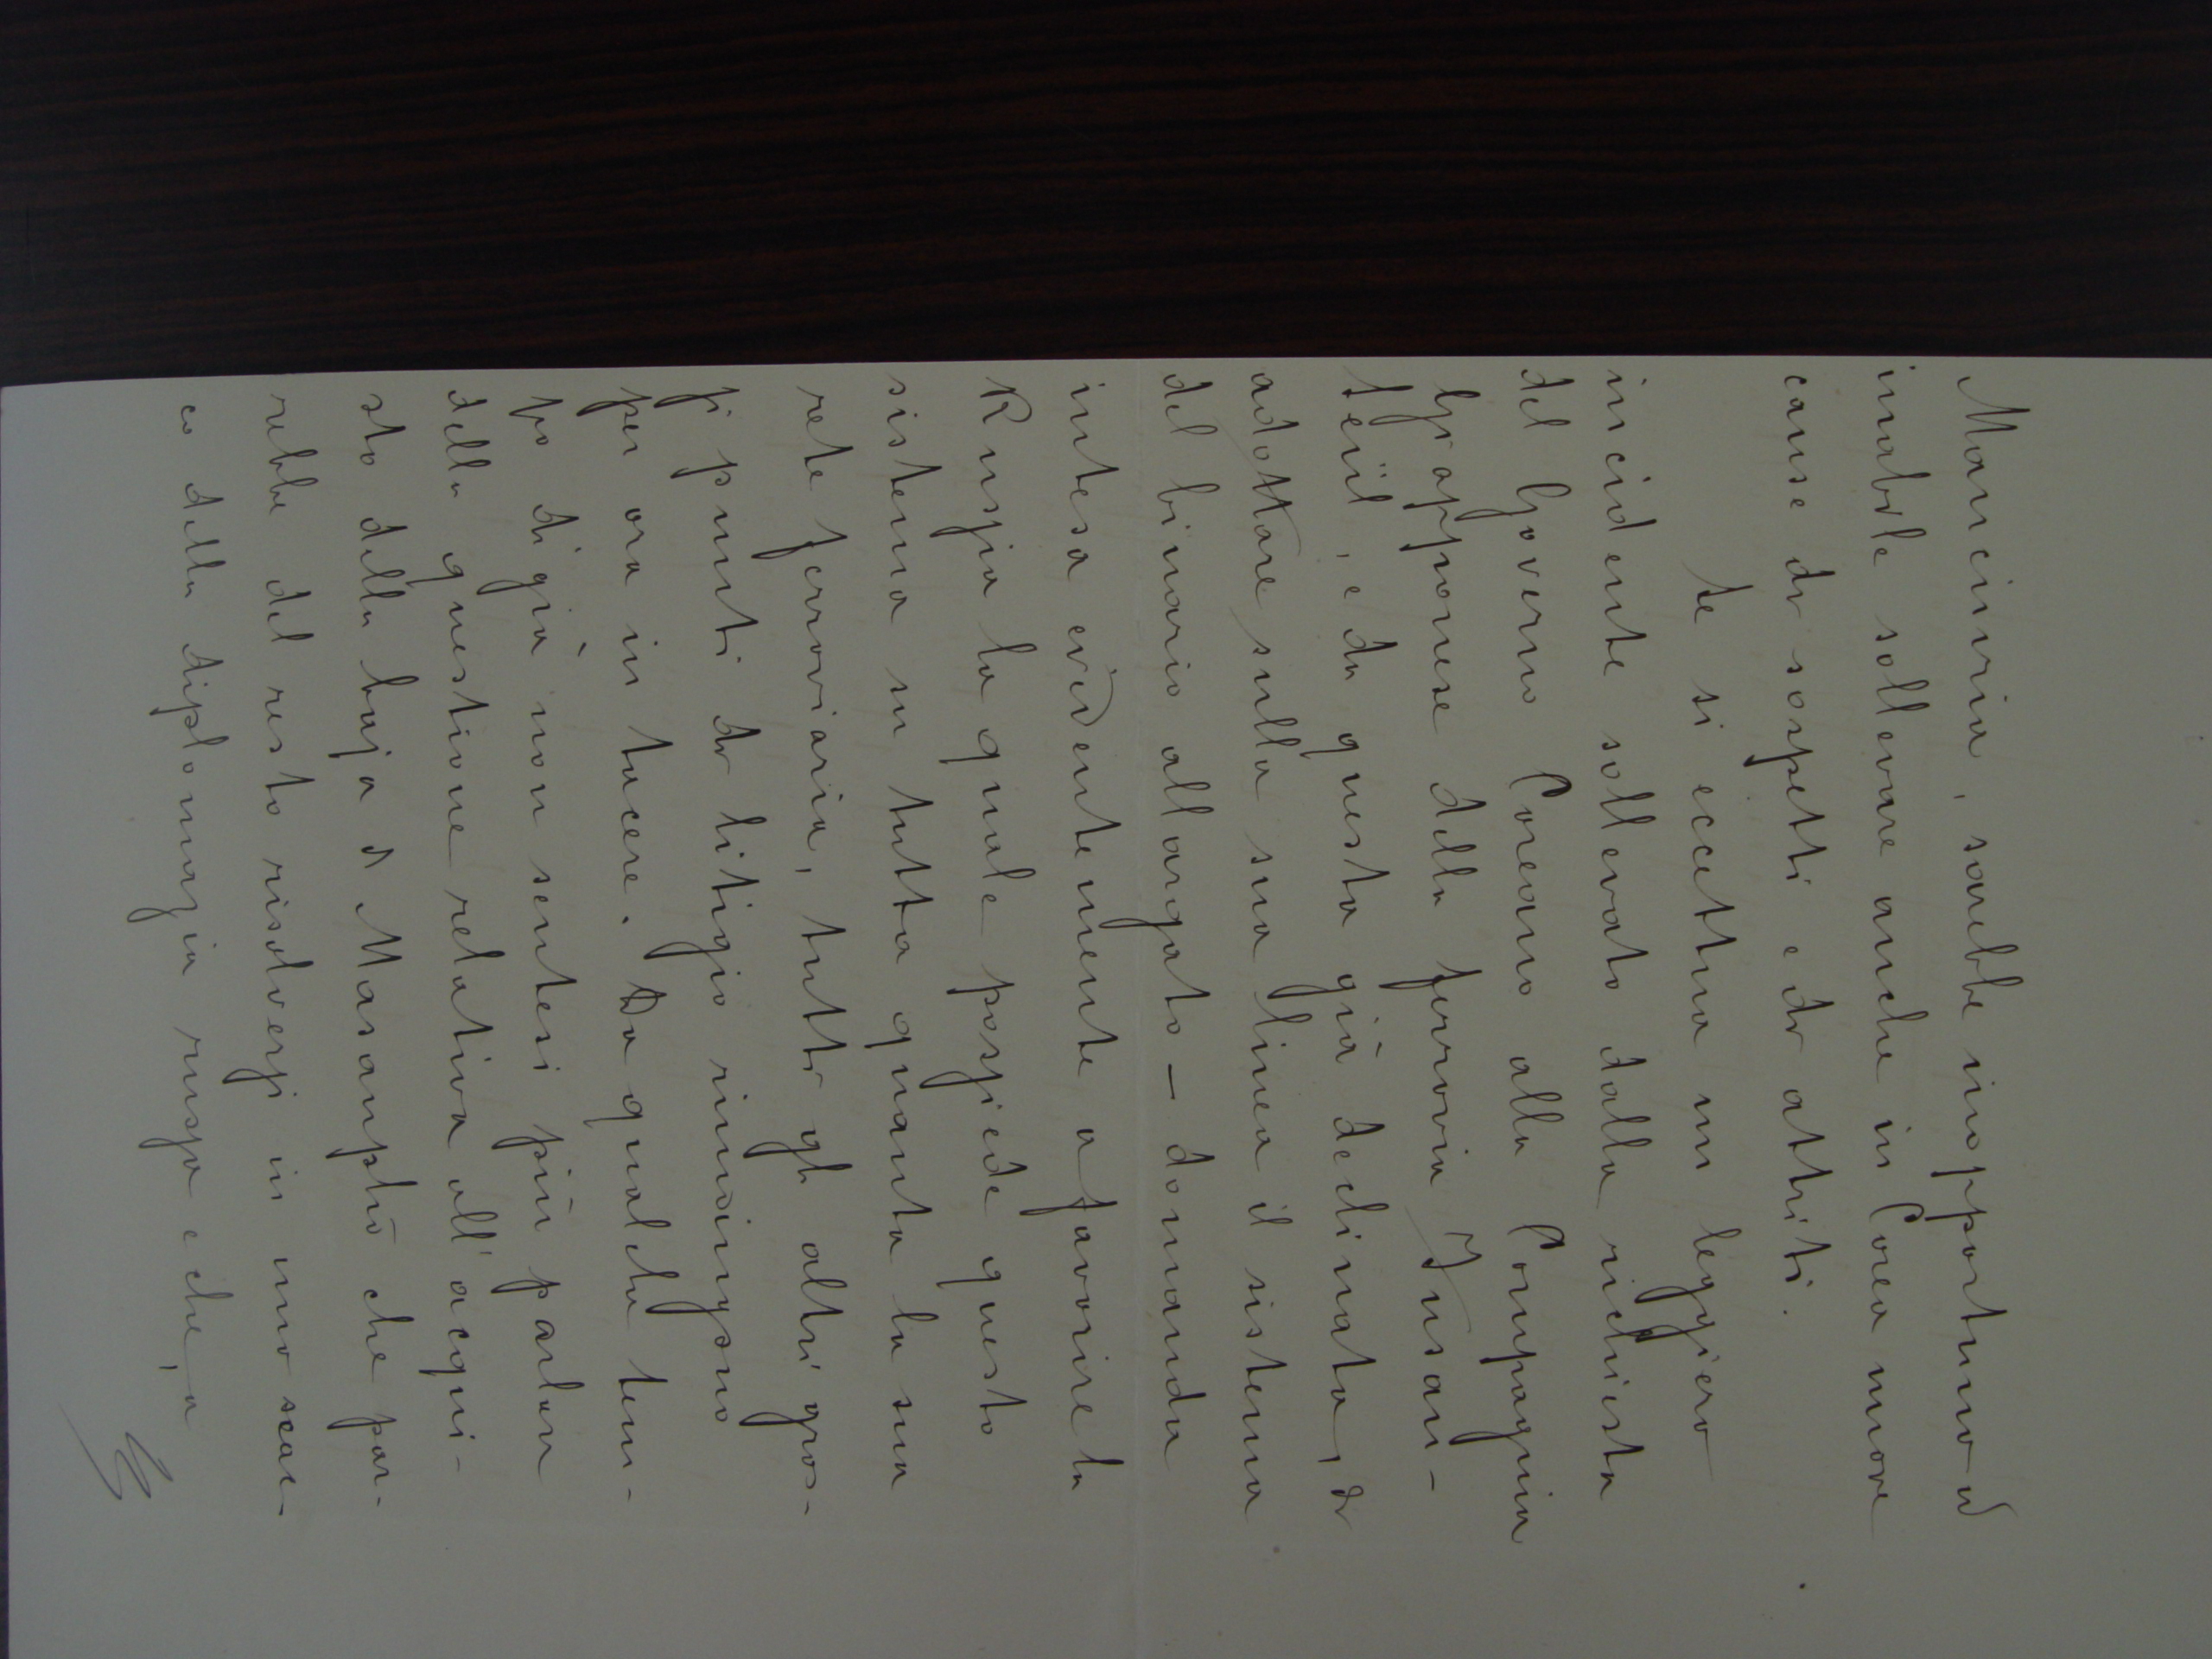 Manciuria, sarebbe inopportuno ed
inabile sollevare anche in Corea nuove
cause di sospetti e di attriti.
Se si eccettua un leggiero
incidente sollevato dalla richiesta
del Governo Coreano alla Compagnia
Giapponese della ferrovia Fusan-
Seül, e da questa già declinata, di
adottare sulla sua linea il sistema
del binario allargato — domanda
intesa evidentemente a favorire la
Russia la quale possiede questo
sistema su tutta quanta la sua
rete ferroviaria, tutti gli altri gros-
si punti di litigio
per ora in tacere. Da qualche tem-
po di già non sentesi più parlare
della questione relativa all'acqui-
sto della baja di Masanpho che par-
rebbe del resto risolversi in uno scac-
co della diplomazia russa e che, a